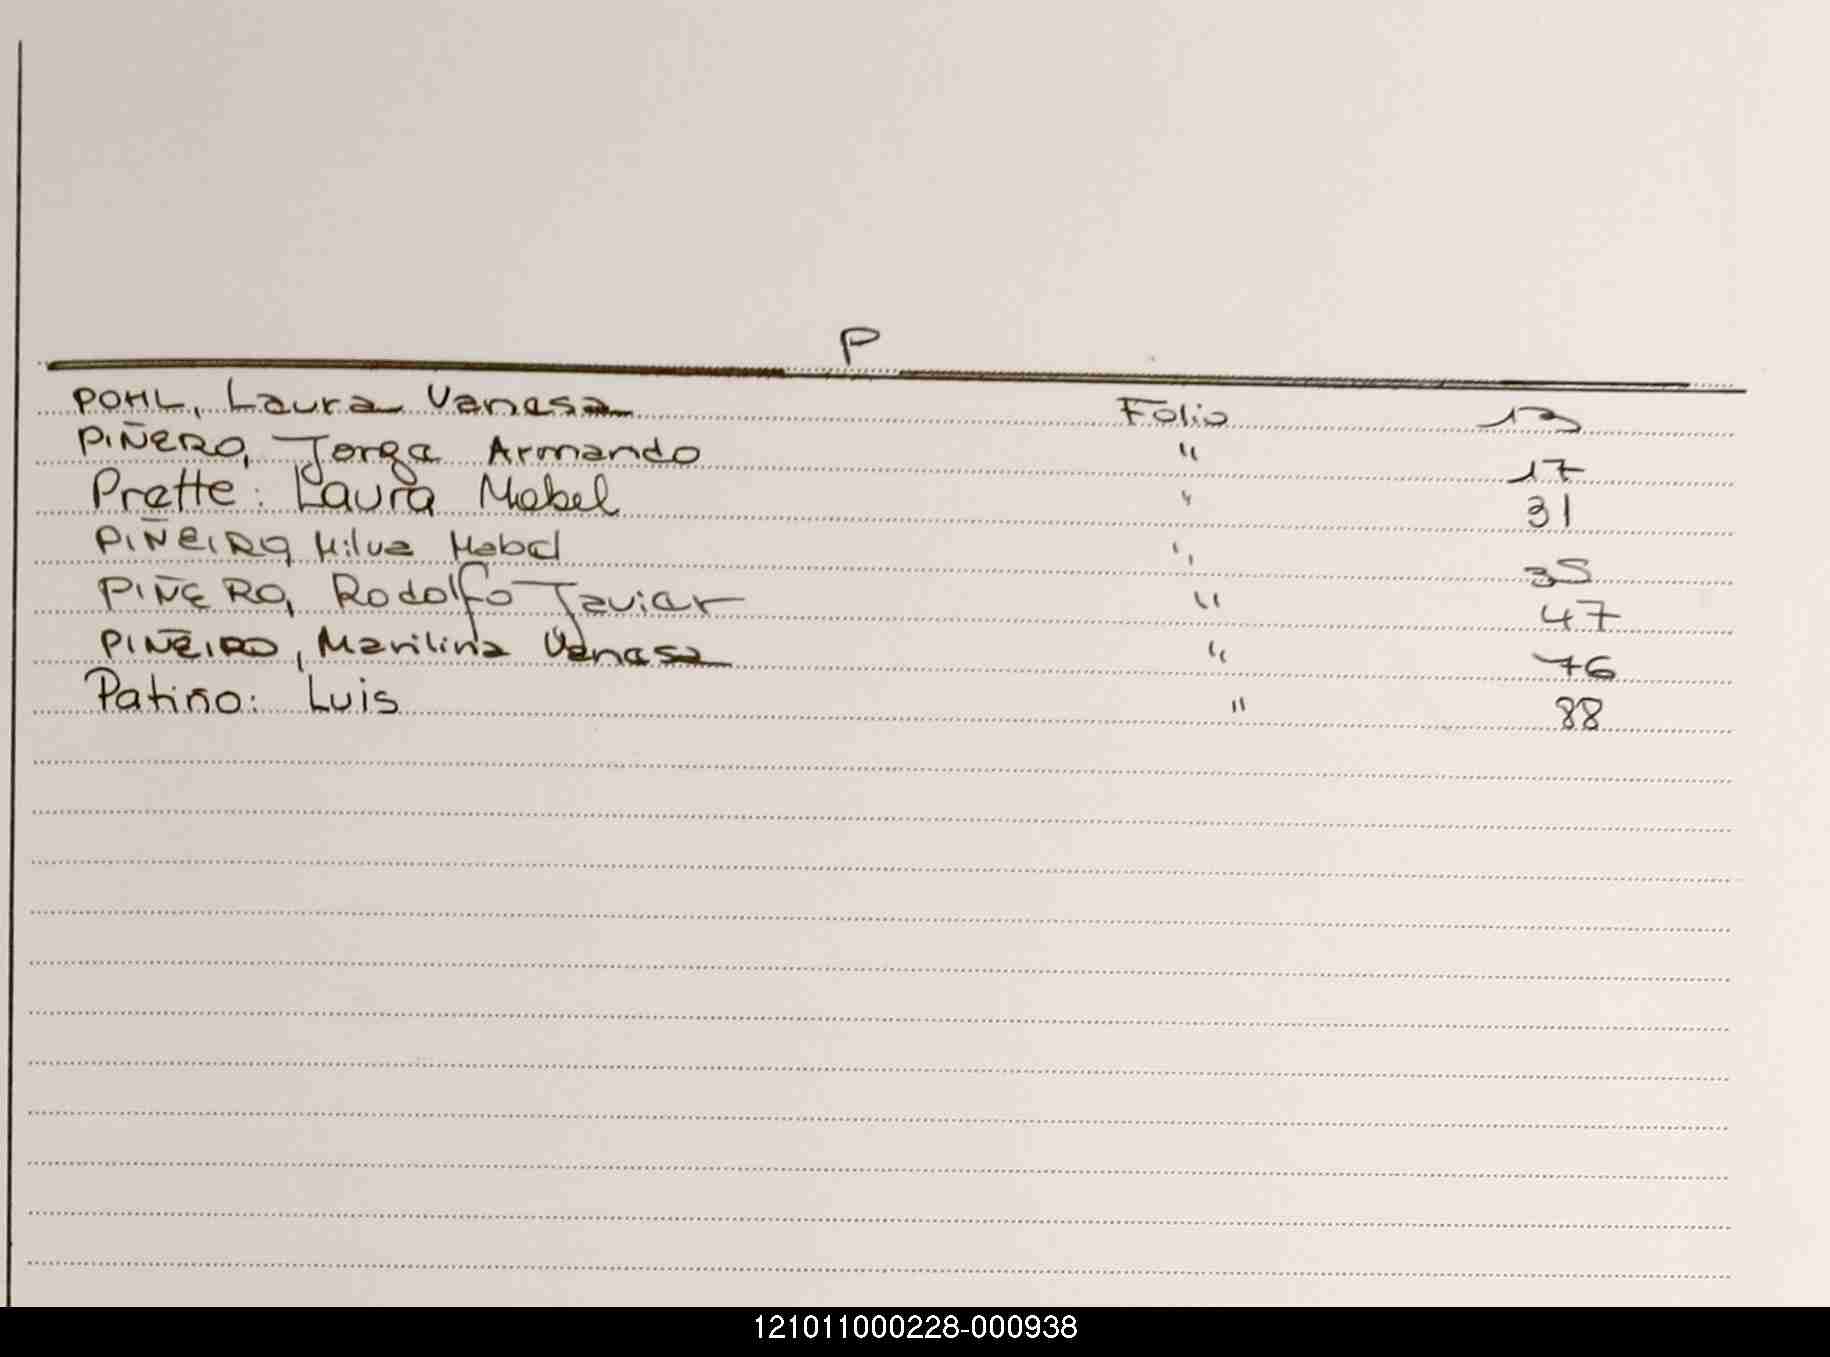 P
POHL, Laura Vanesa Folio 13
PIÑERO, Jorge Armando " 17
Prette: Laura Mabel " 31
PIÑEIRO, Milva Mabel " 35
PIÑERO, Rodolfo Javier " 47
PIÑEIRO, Marilina Vanesa " 76
Patiño: Luis " 88
121011000228-000938